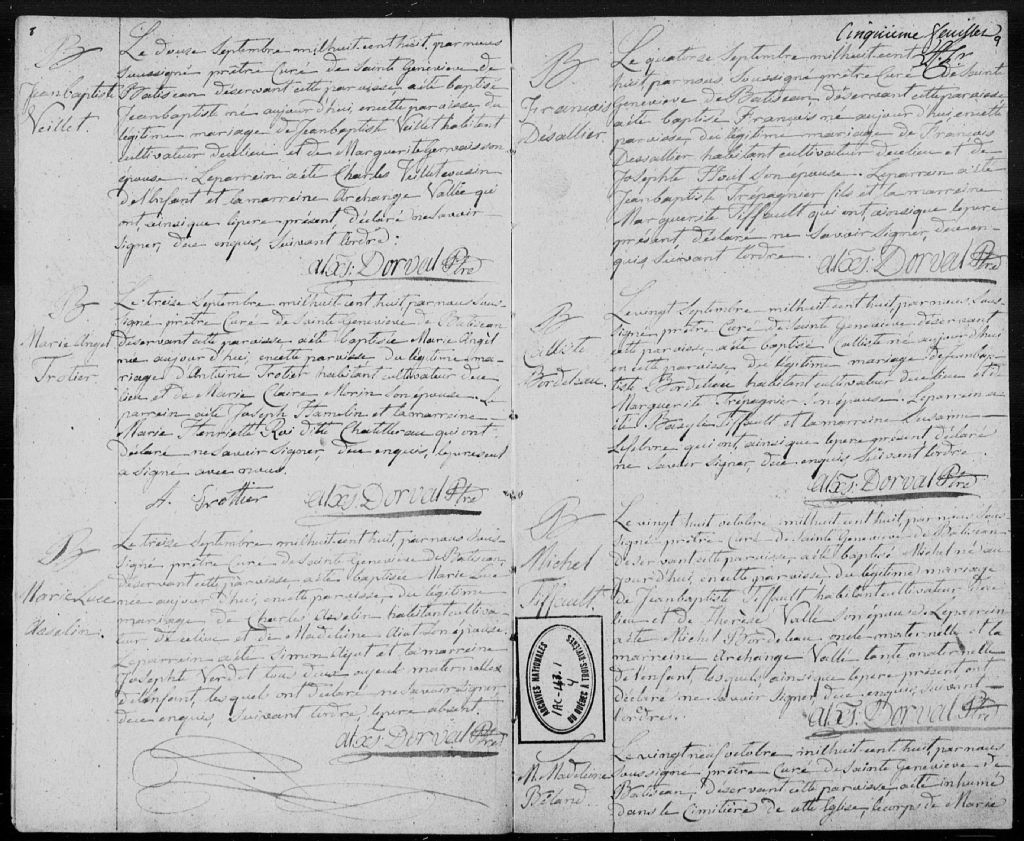 8
B
Jeanbaptiste
Veillet.
Le douze Septembre mil huit cent huit, par nous
Soussigné prêtre Curé de Sainte Genevieve de
Batiscan déservant cette paroisse a été baptisé
Jeanbaptist né aujourd'hui en cette paroisse du
légitime mariage de Jeanbaptist Veillet habitant
cultivateur de ce lieu et de Marguerite Gervais son
épouse. Le parrein a été Charles Veillet cousin
de l'enfant et la marreine Archange Vallée qui
ont, ainsi que le pere présent, déclaré ne savoir
signer, de ce enquis, suivant l'ordre:
alxs: Dorval Ptre
B
Marie Angel
Trotier.
Le treize Septembre mil huit cent huit par nous Sous-
signé prêtre Curé de Sainte Genevieve de Batiscan
déservant cette paroisse a été baptisée Marie Angel
née aujourd'hui, en cette paroisse, du légitime ma-
riage d'Antoine Trotier habitant cultivateur de ce
lieu et de Marie Claire Morin son épouse. Le
parrein a été Joseph Hamelin et la marreine
Marie Henriette Roi dite Chatillerau qui ont
déclaré ne savoir signer, de ce enquis, le pere seul
a signé avec nous.
A. Trottier alxs: Dorval Ptre
B
Marie Luce
Asselin.
Le treize Septembre mil huit cent huit, par nous Sous-
signé prêtre Curé de Sainte Genevieve de Batiscan,
déservant cette paroisse a été baptisée Marie Luce
née aujourd'hui, en cette paroisse, du légitime
mariage de Charles Asselin habitant cultiva-
teur de ce lieu et de Madeleine son épouse.
Le parrein a été Simon et la marreine
Josephte tous deux ayeul maternelle
de l'enfant, lesquels ont déclaré ne savoir signer,
de ce enquis, suivant l'ordre, le pere absent.
alxs: Dorval Ptre
Cinquieme feuillet
9
B
François
Desallier
Le quatorze Septembre mil huit cent
huit par nous soussigné prêtre Curé de Sainte
Genevieve de Batiscan, déservant cette paroisse
a été baptisé François né aujourd'hui, en cette
paroisse du légitime mariage de François
Dessallier habitant cultivateur de ce lieu et de
Josephte son épouse. Le parrein a été
Jeanbaptiste Trépagnier fils et la marreine
Marguerite Tiffault qui ont, ainsi que le pere
présent, déclaré ne savoir signer, de ce en-
quis suivant l'ordre.
alxs: Dorval Ptre
B
Calliste
Bordeleau
Le vingt Septembre mil huit cent huit, par nous Sous-
signé prêtre Curé de Sainte Genevieve, déservant
cette paroisse, a été baptisé Calliste né aujourd'hui
en cette paroisse, du légitime mariage de Jeanbap-
tiste Bordeleau habitant cultivateur de ce lieu et de
Marguerite Trépagnier son épouse. Le parrein a
été Basyle Tiffault et la marreine Susanne
Lefebvre qui ont, ainsi que le pere présent déclaré
ne savoir signer, de ce enquis suivant l'ordre.
alxs: Dorval Ptre
B
Michel
Tiffault.
Le vingt huit octobre mil huit cent huit, par nous Sous-
signé prêtre Curé de Sainte Genevieve de Batiscan
déservant cette paroisse a été baptisé Michel né au-
jourd'hui, en cette paroisse, du légitime mariage
de Jeanbaptist Tiffault habitant cultivateur de ce
lieu et de Thérèse Vallé son épouse. Le parrein
a été Michel Bordeleau oncle maternelle et la
marreine Archange Vallé tante maternelle
de l'enfant, lesquels, ainsi que le pere présent, ont
déclaré ne savoir signer de ce enquis, suivant
l'ordre.
alxs: Dorval Ptre
ARCHIVES NATIONALES
DU QUÉBEC
M. Madeleine
Béland.
Le vingt neuf octobre mil huit cent huit, par nous
Soussigné prêtre Curé de Sainte Genevieve de
Batiscan, déservant cette paroisse, a été inhumé
dans le Cimitière de cette Eglise, le corps de Marie